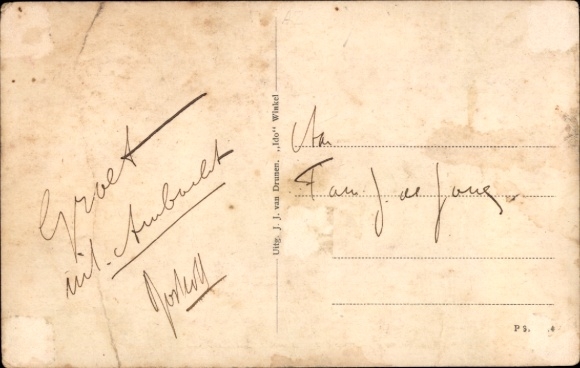 Groet
uit. Ambacht
Uitg. J. J. van Drunen. „Ido" Winkel
Aan
Fam. J. de Jong.
P 9. 4